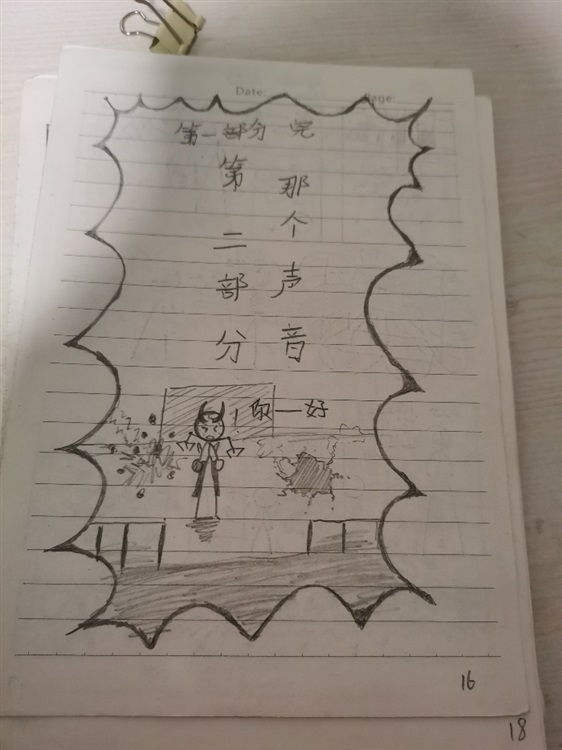 Date:
Page:
第一部分 完
第二部分
那个声音
你一好
16
18